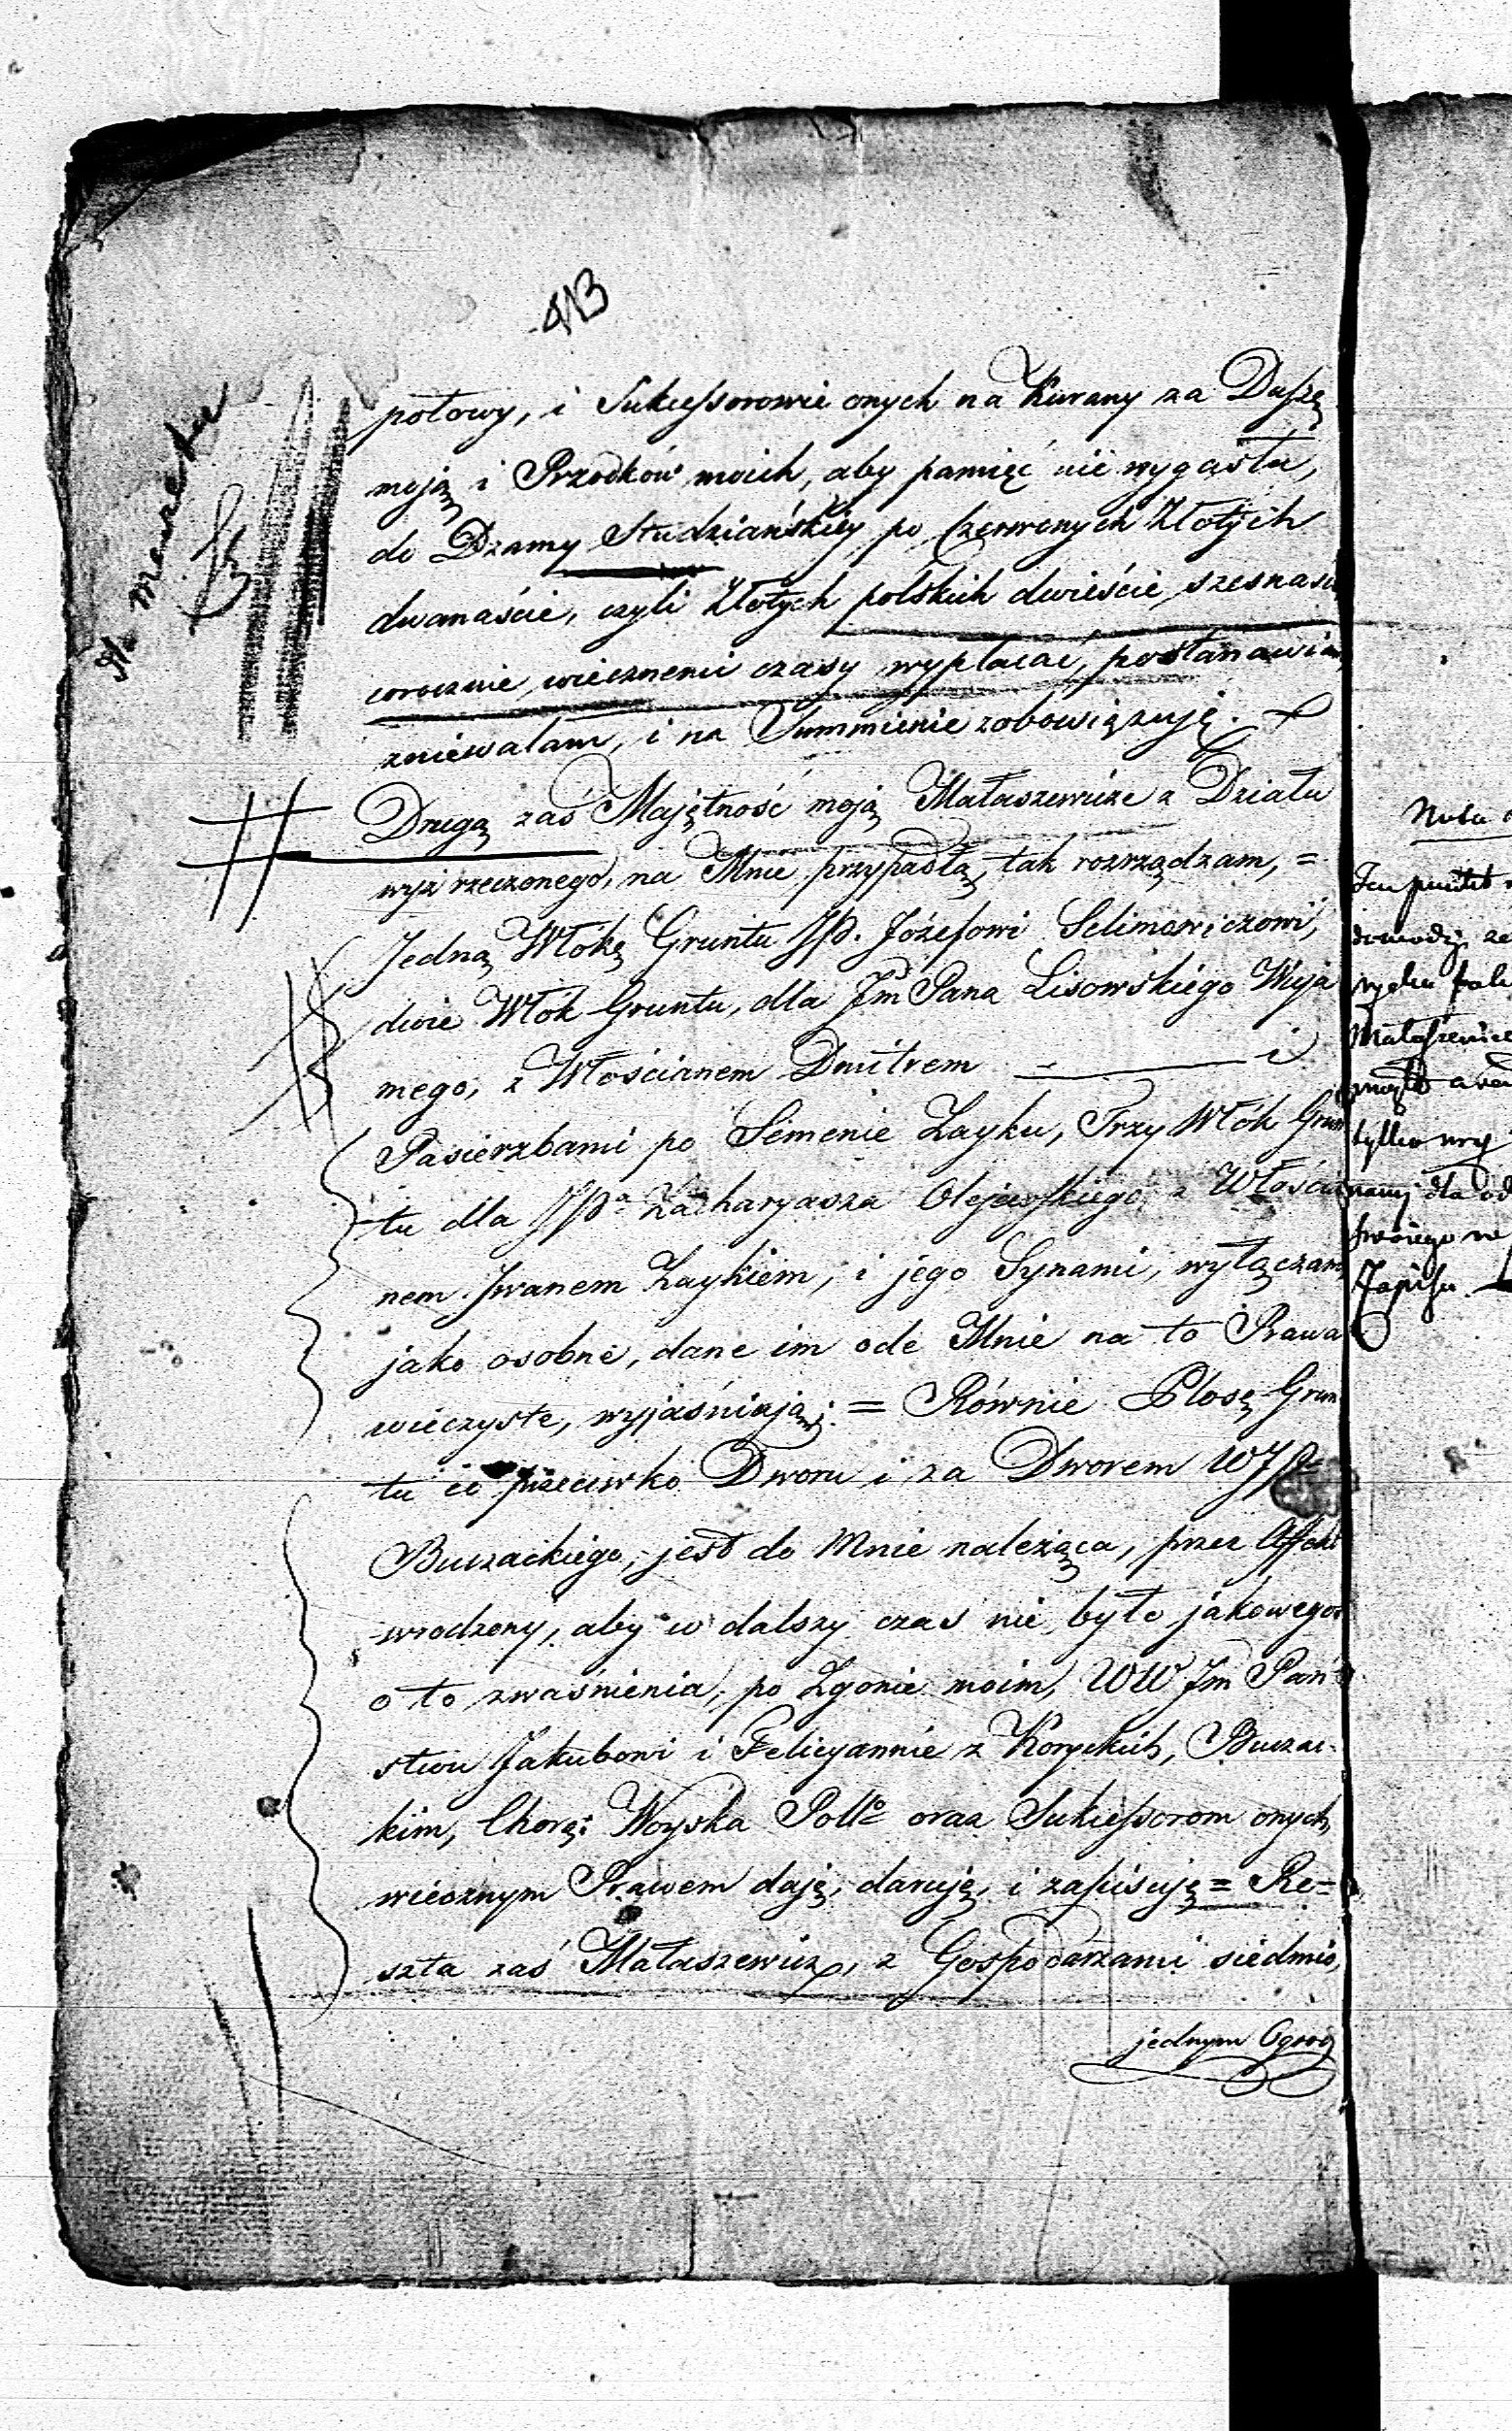 413
połowy, i Sukcessorowie onych na Kurany za Duszę
moją i Przodków moich, aby pamięć nie wygasła,
do Dżamy Studziańskiey po Czerwonych Złotych
dwanaście, czyli Złotych polskich dwieście szesnaście
corocznie wiecznemi czasy wypłacać, postanawiam
zniewalam, i na Summienie zobowiązuję.
Drugą zaś Majętność moją Małaszewicze z Działu
wyż rzeczonego, na Mnie przypadłą, tak rozrządzam, =
Jedną Włókę Gruntu JP. Józefowi Selimowiczowi,
dwie Włók Gruntu, dla Jm Pana Lisowskiego
mego, z Włościanem Dmitrem — i
Pasierzbami po Semenie Zayku, Trzy Włók Grun
tu dla JPa Zacharyasza z Włościa
nem Jwanem Zaykiem, i jego Synami, wyłączam
jako osobne, dane im ode Mnie na to Prawa
wieczyste, wyjaśniają; = Równie Plosę Grun
tu co przeciwko Dworu i za Dworem WJP
Buczackiego, jest do Mnie należąca, przez Affekt
wrodzony, aby w dalszy czas nie było jakowegoś
o to zwaśnienia, po Zgonie moim, WW Jm Pań
stwu Jakubowi i Felicyannie z Koryckich, Buczac-
kim, Chorą: Woyska Polko oraz Sukcessorom onych,
wiecznym Prawem daję, daruję, i zapisuję = Re=
szta zaś Małaszewicz, z Gospodarzami siedmio,
jednym Ogrod
Nota
Ten punkt
Małaszewicze
tylko
swoiego
Zapisu